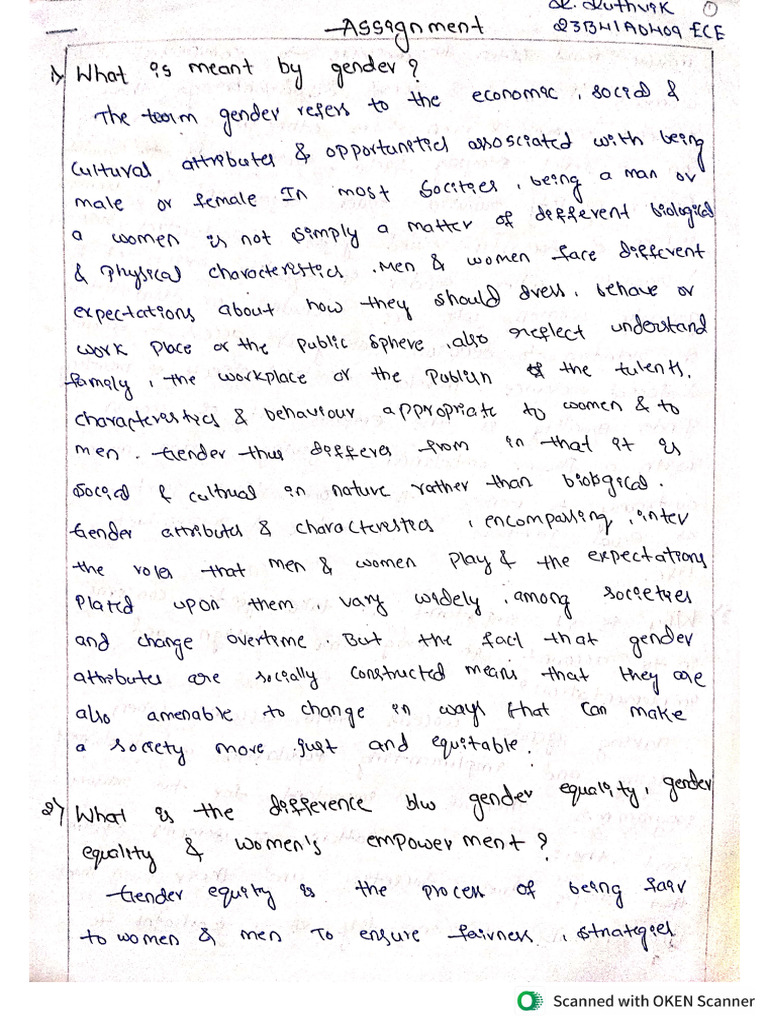 Assignment
①
23BH1A0409 ECE
1) What is meant by gender?
The term gender refers to the economic, social &
cultural attributes & opportunities associated with being
male or female In most Socities, being a man or
a women is not simply a matter of different biological
& Physical characteristics. Men & women face different
expectations about how they should dress, behave or
work Place or the public Sphere, also reflect understand
family, the workplace or the Publish the talents,
characteristics & behaviour appropriate to women & to
men. Gender thus differes from in that it is
Social & cultrual in nature rather than biological.
Gender attributes & characteristics, encompassing, inter
the roles that men & women Play & the expectations
Plated upon them, vary widely, among societies
and change overtime. But the fact that gender
attributes are socially constructed means that they are
also amenable to change in ways that can make
a society more just and equitable.
2) What is the difference b/w gender equality, gender
equality & women's empowerment?
Gender equity is the process of being fair
to women & men To ensure fairness, Strategies
Scanned with OKEN Scanner